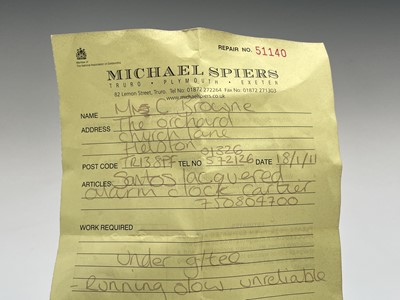 REPAIR NO. 51140
MICHAEL SPIERS
TRURO • PLYMOUTH • EXETER
82 Lemon Street, Truro. Tel No: 01872 272264 Fax No: 01872 271303
www.michaelspiers.co.uk
NAME Mrs C Krowne
ADDRESS The orchard
church lane
Helston
01326
POST CODE TR13 8PF TEL NO 572126 DATE 18/1/11
ARTICLES Santos lacquered
alarm clock cartier
750804700
WORK REQUIRED
Under g/tee
- Running slow unreliable